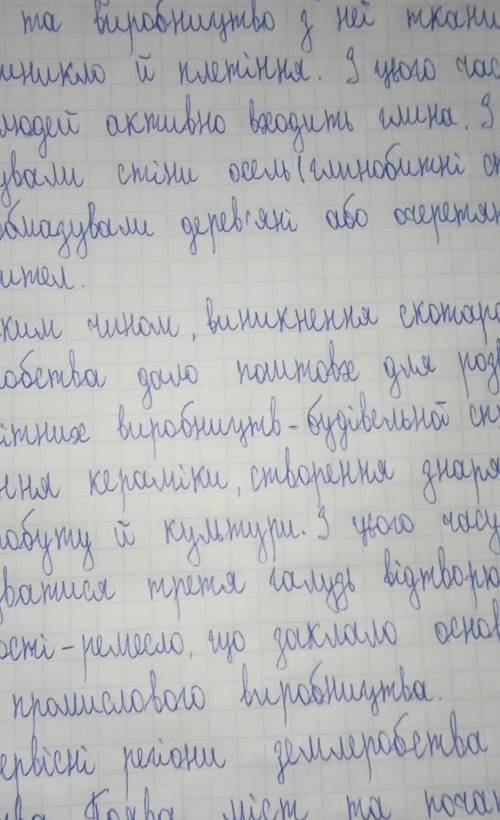 та виробництво з неї ткани
иникло й плетіння. З цього час
людей активно входить глина. З
ували стіни осель (глинобитні ст
обмазували дерев'яні або очеретян
ител.
ким чином, виникнення скотаро
обства дало поштовх для розв
ітних виробництв - будівельної сп
ння кераміки, створення знаря
побуту й культури. З цього часу
ватися третя галузь відтворю
ості - ремесло, що заклало основ
промислового виробництва.
ервісні регіони землеробства
ва. Поява міст та почат